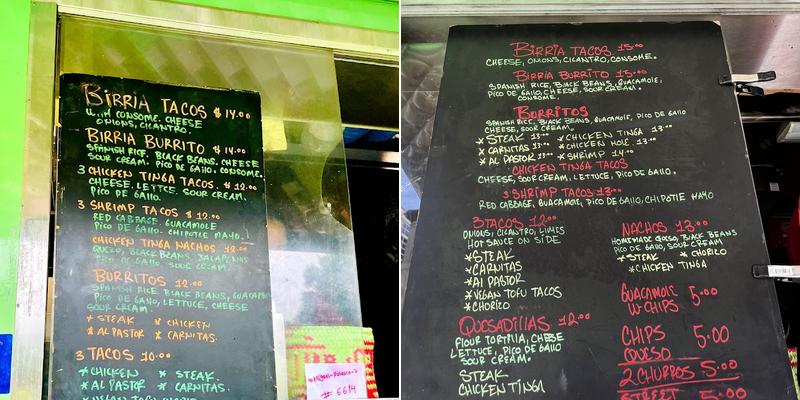 BIRRIA TACOS $14.00
WITH CONSOME. CHEESE
ONIONS, CILANTRO.
BIRRIA BURRITO $14.00
SPANISH RICE. BLACK BEANS. CHEESE
SOUR CREAM. PICO DE GAllO. CONSOME.
3 CHICKEN TINGA TACOS. $12.00
CHEESE, LETTCE. SOUR CREAM.
PICO DE GAllO.
3 SHRIMP TACOS $12.00
RED CABBAGE. GUACAMOLE
PICO DE GAllO. CHIPOTLE MAYO.
CHICKEN TINGA NACHOS 12.00
QUESO, BLACK BEANS, JALAPENOS
PICO DE GAllO. SOUR CREAM.
BURRITOS 12.00
SPANISH RICE. BLACK BEANS, GUACAMO
PICO DE GAllO, LETTUCE, CHEESE
SOUR CREAM.
* STEAK * CHICKEN
* AL PASTOR * CARNITAS.
3 TACOS 10.00
* CHICKEN * STEAK.
* AL PASTOR * CARNITAS.
* VEGAN TOFU TACOS
# 6614
BIRRIA TACOS 15.00
CHEESE, ONIONS, CILANTRO, CONSOME.
BIRRIA BURRITO 15.00
SPANISH RICE, BLACK BEANS, GUACAMOLE,
PICO DE GAllO, CHEESE, SOUR CREAM.
CONSOME.
BURRITOS
SPANISH RICE, BLACK BEANS, GUACAMOLE, PICO DE GAllO
CHEESE, SOUR CREAM.
* STEAK 13.00 * CHICKEN TINGA 13.00
* CARNITAS 13.00 * CHICKEN MOLE. 13.00
* AL PASTOR 13.00 * SHRIMP 14.00
CHICKEN TINGA TACOS
CHEESE, SOUR CREAM, LETTUCE, PICO DE GAllO.
3 SHRIMP TACOS 13.00
RED CABBAGE, GUACAMOLE, PICO DE GAllO, CHIPOTlE MAYO
3 TACOS 12.00
ONIONS, CILANTRO, LIMES
HOT SAUCE ON SIDE
* STEAK
* CARNITAS
* Al PASTOR
* VEGAN TOFU TACOS
* CHORICO
QUESADIllAS 12.00
FlOUR TORTIllA, CHEESE
LETTUCE, PICO DE GAllO
SOUR CREAM.
STEAK
CHICKEN TINGA
NACHOS 13.00
HOMEMADE QUESO, BLACK BEANS
PICO DE GAllO, SOUR CREAM
* STEAK * CHORICO
* CHICKEN TINGA
GUACAMOlE 5.00
W. CHIPS
CHIPS 5.00
QUESO
2 CHURROS 5.00
STREET 5.00